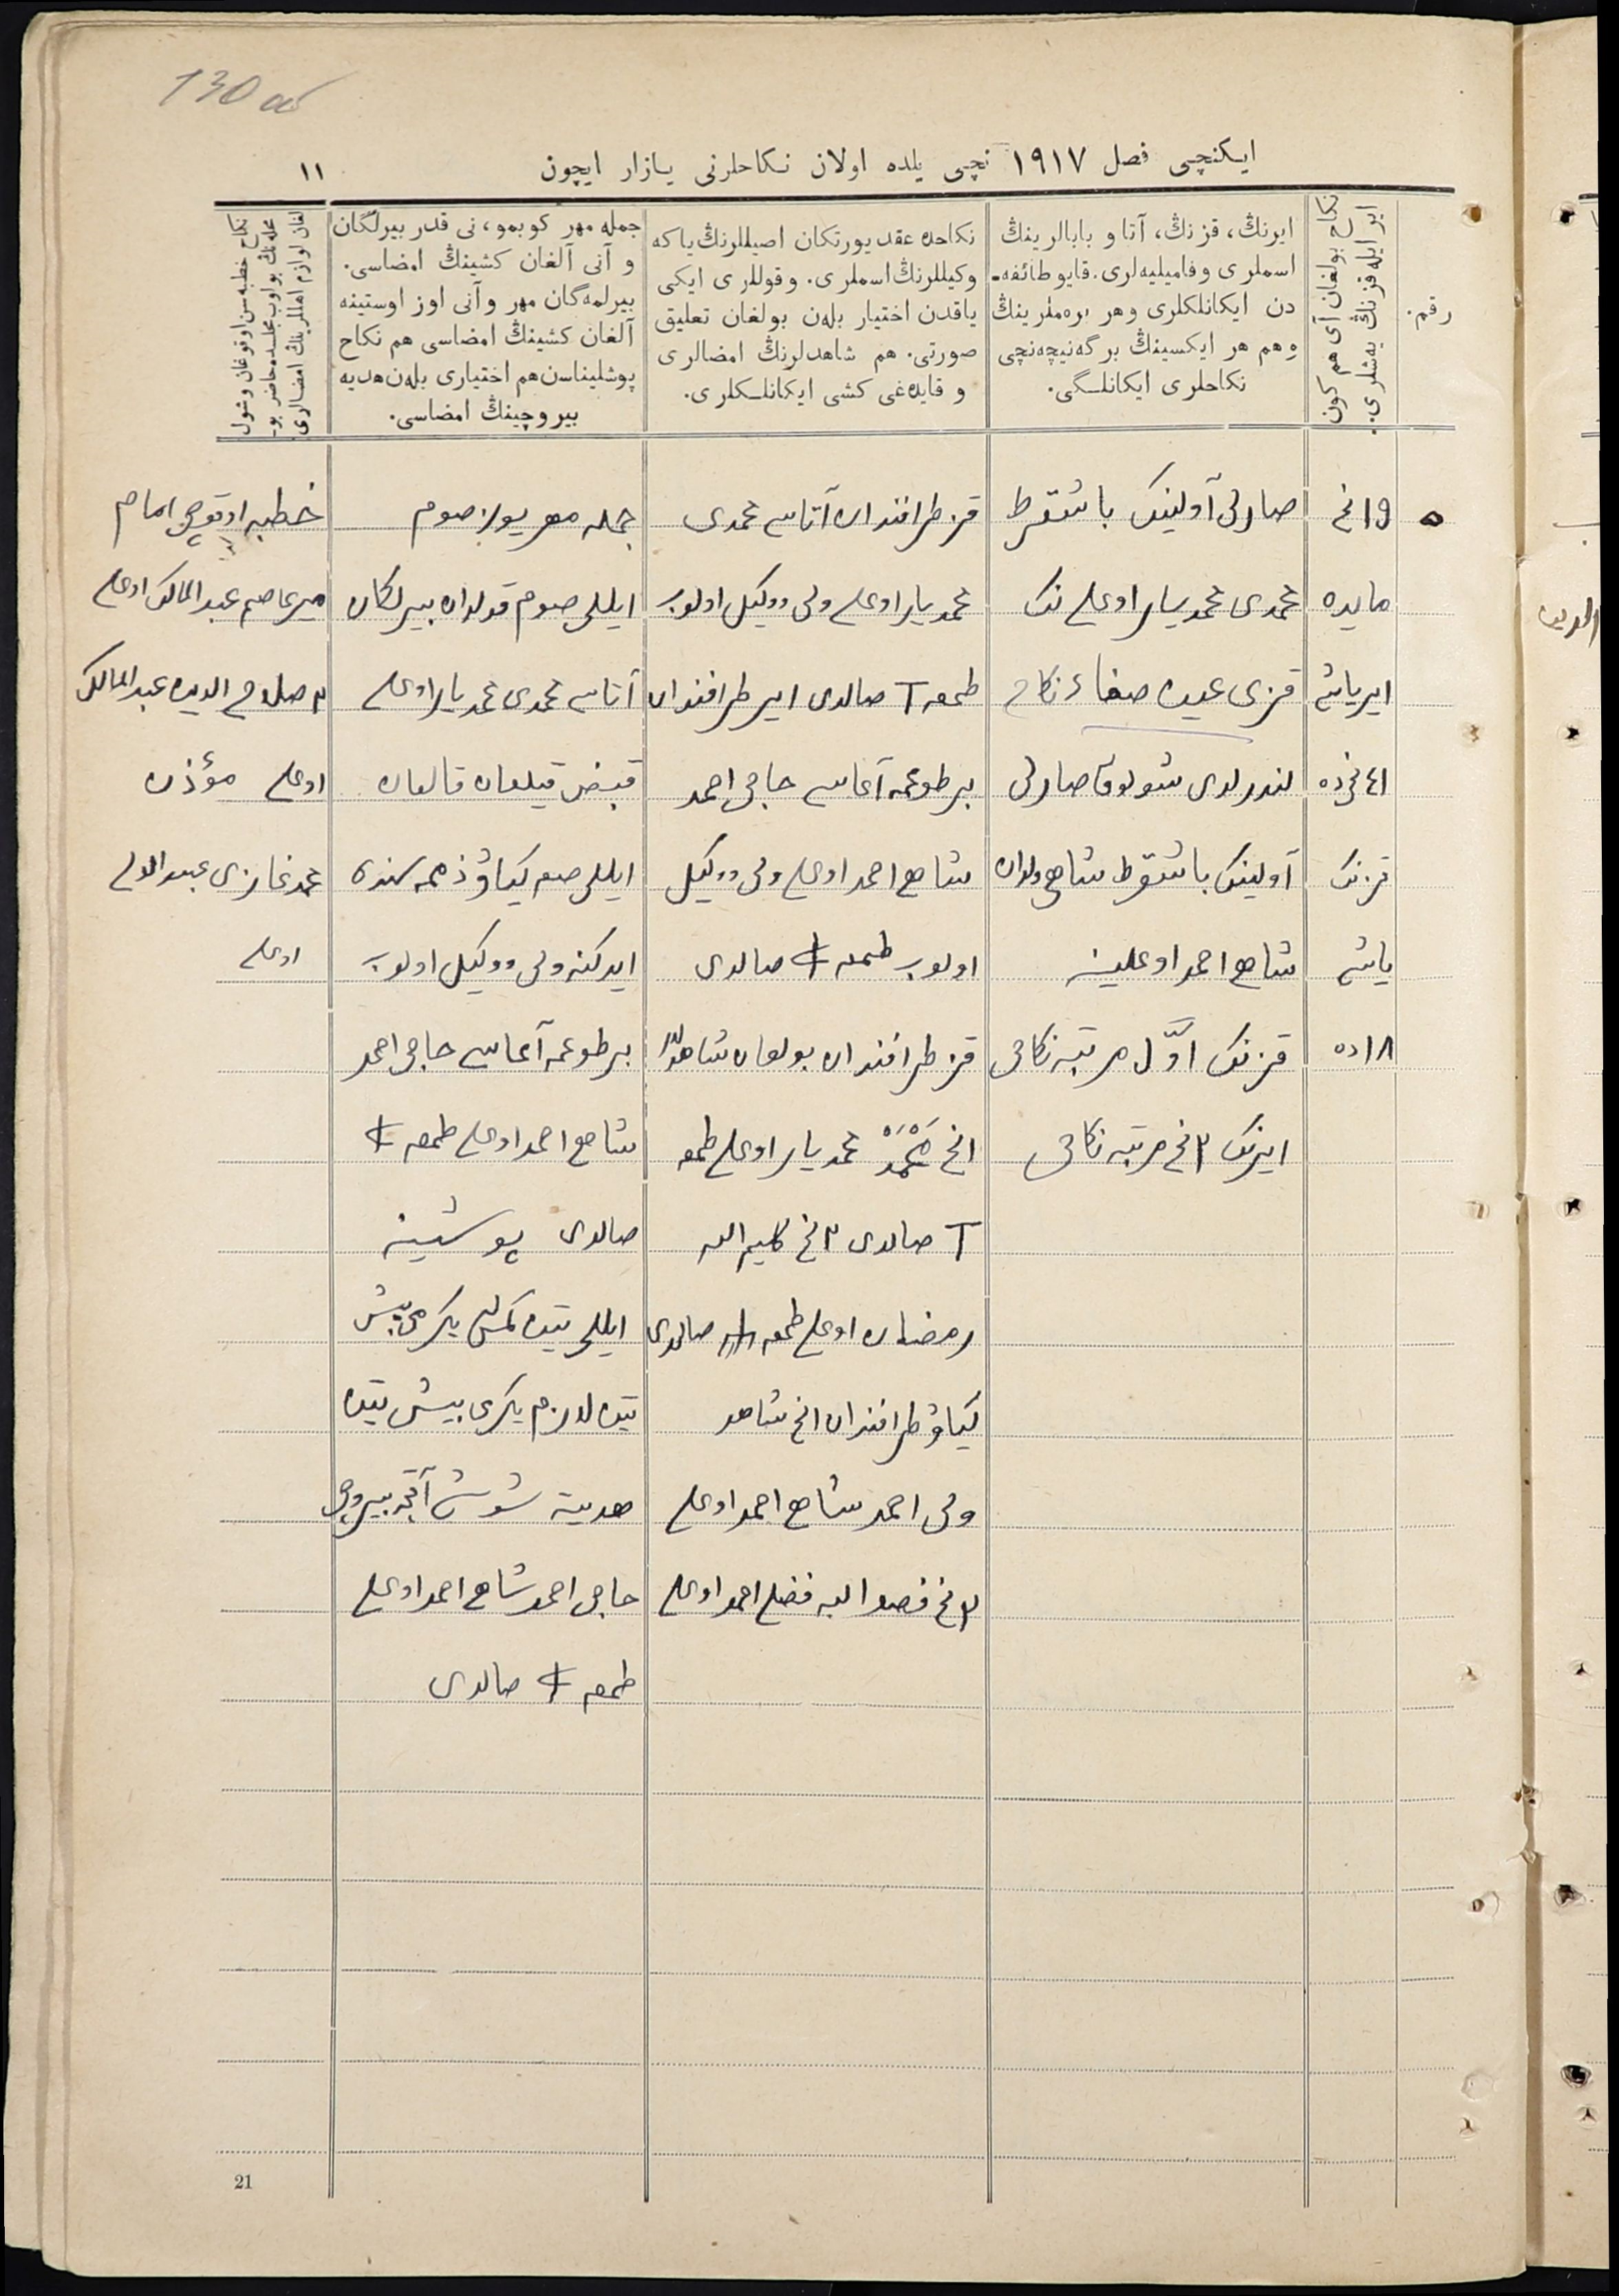 130 об
ایکنچی فصل ١٩١٧ نچی یلده اولان نکاحلرنی یازار ایچون
١١
رقم.
نکاح بولغان آی هم کون
ایر ایله قزنڭ یەشلری.
ایرنڭ، قزنڭ، آتا و بابالرینڭ
اسملری وفامیلیەلری. قایو طائفه‌ـ
دن ایکانلکلری وهر برەملرینڭ
وهم هر ایکسینڭ بر گەنیچەنچی
نکاحلری ایکانلگی.
نکاحده عقد یورتکان اصیللرنڭ یاکه
وکیللرنڭ اسملری. وقوللری ایکی
یاقدن اختیار بلەن بولغان تعلیق
صورتی. هم شاهدلرنڭ امضالری
و قایدەغی کشی ایکانلکلری.
جمله مهر کوبمو، نی قدر بیرلگان
و آنی آلغان کشینڭ امضاسی.
بیرلمەگان مهر وآنی اوز اوستینه
آلغان کشینڭ امضاسی هم نکاح
پوشلیناسن هم اختیاری بلەن هدیه
بیروچینڭ امضاسی.
نکاح خطبه سن اوقوغان وشول
محلەنڭ بولوب مجلسدە حاضر بو-
لغان لوازم اهللرینڭ امضالری
٥
١٩نخ
مایده
ایر یاشی
٤١نخ ده
قزنک
یاشی
١٨ده
صارلی آولینک باشقرط
محمدی محمدیار اوغلی نک
قزی عیده صفاء نکاح
لندرلدی شولوق صارلی
آولینک باشقرط شاهی ولدان
شاهی احمد اوغلینه
قزنک اوّل مرتبه نکاحی
ایرنک ٢نخ مرتبه نکاحی
قز طرافندان آتاسی محمدی
محمدیار اوغلی ولی ووکیل اولوب
طمغه T صالدی ایر طرافندان
بر طوغمه آغاسی حاجی احمد
شاهی احمد اوغلی ولی ووکیل
اولوب طمغه ‡ صالدی
قز طرافندان بولغان شاهدلر
١نخ مُحَمَّدْ محمدیار اوغلی طمغه
T صالدی ٢نخ کلیم الله
رمضان اوغلی طمغه صالدی
کیاو طرافندان ١نخ شاهد
ولی احمد شاهی احمد اوغلی
٢نخ فضل احمد اوغلی
جمله مهر یوز صوم
ایللی صوم قولدان بیرلکان
آتاسی محمدی محمدیار اوغلی
قبض قیلغان قالغان
ایللی صوم کیاو ذمه سنده
ایدکنه ولی ووکیل اولوب
بر طوغمه آغاسی حاجی احمد
شاهی احمد اوغلی طمغه ‡
صالدی پوشلینه
ایللی تین یکرمی بیش
تین لازم یکرمی بیش تین
هدیه شوشی آقچه بیروچی
حاجی احمد شاهی احمد اوغلی
طمغه ‡ صالدی
خطبه اوقوچی امام
میرعاصم عبدالمالک اوغلی
٢ صلاح الدین عبدالمالک
اوغلی مؤذن
محمد غازی عبد
اوغلی
21